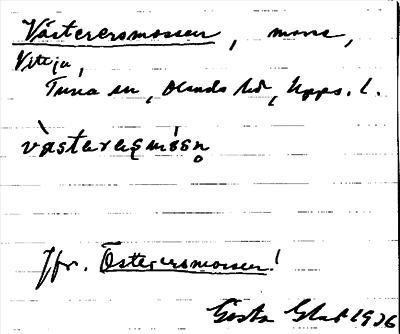 Västerersmossen, mosse,
Vitsju,
Tuna sn, Olands hd, Upps. l.
vàstərəʂmósn̥
Jfr. Österersmossen!
Gösta Glad 1926